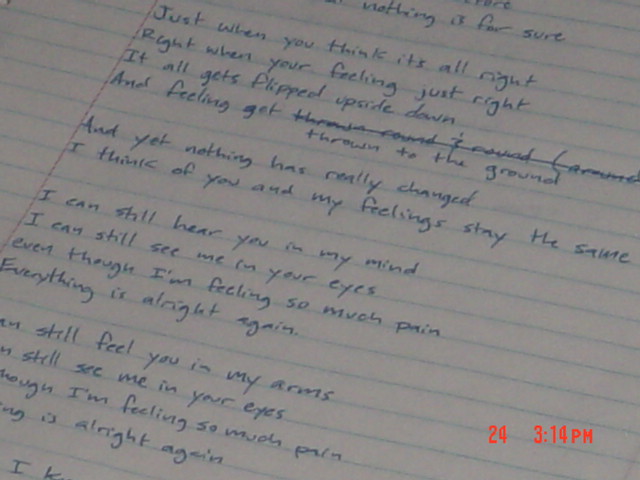 nothing is for sure
Just when you think its all right
Right when your feeling just right
It all gets flipped upside down
And feeling get thrown round & round (around
thrown to the ground
And yet nothing has really changed
I think of you and my feelings stay the same
I can still hear you in my mind
I can still see me in your eyes
even though I'm feeling so much pain
Everything is alright again.
an still feel you in my arms
n still see me in your eyes
hough I'm feeling so much pain
ing is alright again
I
24 3:14PM